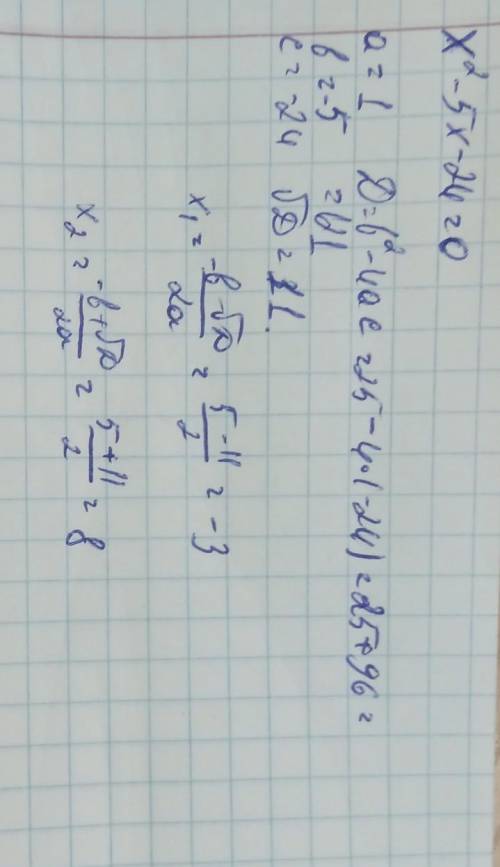 x² - 5x - 24 = 0
a = 1 D = b² - 4ac = 25 - 4·(-24) = 25 + 96 =
b = -5 = 121
c = -24 √D = 11.
x₁ = (-b - √D)/2a = (5 - 11)/2 = -3
x₂ = (-b + √D)/2a = (5 + 11)/2 = 8